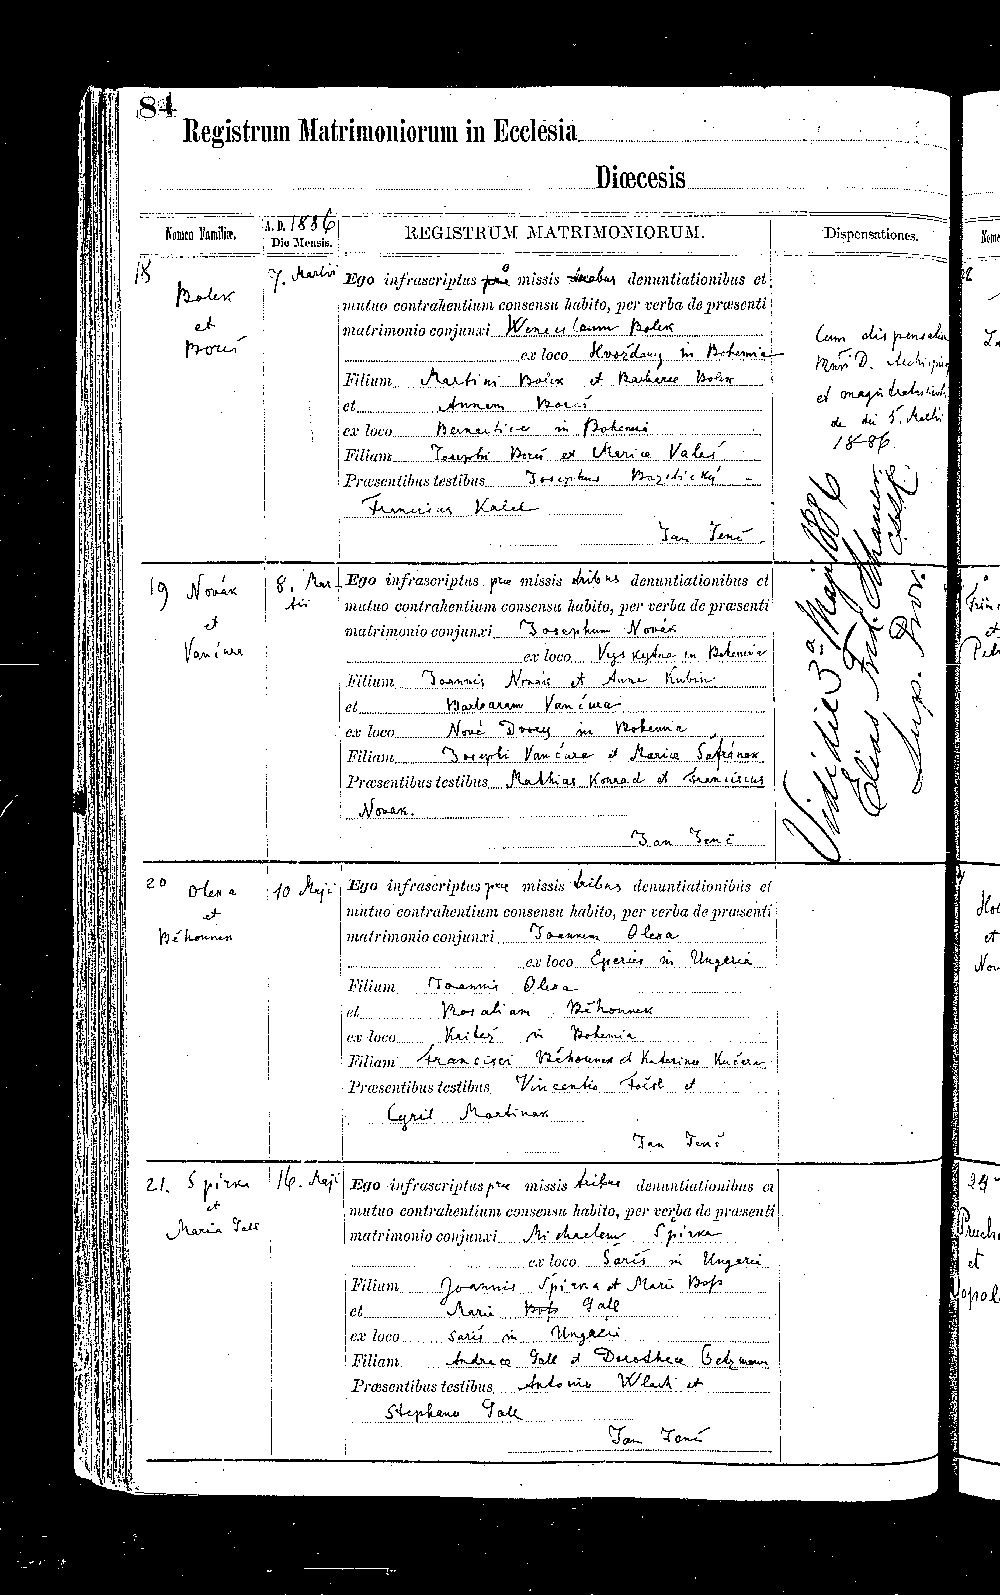 84
Registrum Matrimoniorum in Ecclesia
Diœcesis
Nomen Familiæ.
A. D. 1886
Die Mensis.
REGISTRUM MATRIMONIORUM.
Dispensationes.
18
Bolek
et
Boruš
7. Martii
Ego infrascriptus præ missis denuntiationibus et
mutuo contrahentium consensu habito, per verba de præsenti
matrimonio conjunxi Wenceslaum Bolek
ex loco Hvožďany in Bohemia
Filium Martini Bolek et Barbaræ Bolek
et Annam
ex loco Bernartice in Bohemia
Filiam Josephi et Mariæ Valeš
Præsentibus testibus Josephus
Franciscus Kalel
Jan
Cum dispensatione
et magistratus
de die 5. Martii
1886.
19 Novák
et
Vančura
8. Mar
tii
Ego infrascriptus præ missis tribus denuntiationibus et
mutuo contrahentium consensu habito, per verba de præsenti
matrimonio conjunxi Josephum Novák
ex loco in Bohemia
Filium Joannis Novák et Anna Kubin
et Barbaram Vančura
ex loco Nové Dvory in Bohemia
Filiam Josephi Vančura et Mariæ Šafránek
Præsentibus testibus Mathias Konrad et Franciscus
Novák.
Jan
Vidi die 3a Maji 1886
Elias Frd.
20
Olexa
et
Běhounek
10 Maji
Ego infrascriptus præ missis tribus denuntiationibus et
mutuo contrahentium consensu habito, per verba de præsenti
matrimonio conjunxi Joannem Olexa
ex loco Eperies in Ungeria
Filium Joannis Olexa
et Rosaliam Běhounek
ex loco in Bohemia
Filiam Francisci Běhounek et Katerinæ Kučera
Præsentibus testibus Vincentio et
Cyril Martinek
Jan
21. Spirka
et
Maria Gall
16. Maji
Ego infrascriptus præ missis tribus denuntiationibus et
mutuo contrahentium consensu habito, per verba de præsenti
matrimonio conjunxi Michaelem Spirka
ex loco Šariš in Ungeria
Filium Joannis Spirka et Marie
et Marie Gall
ex loco Šariš in Ungeria
Filiam Andreæ Gall et Dorotheæ
Præsentibus testibus Antonio et
Stephano Gall
Jan